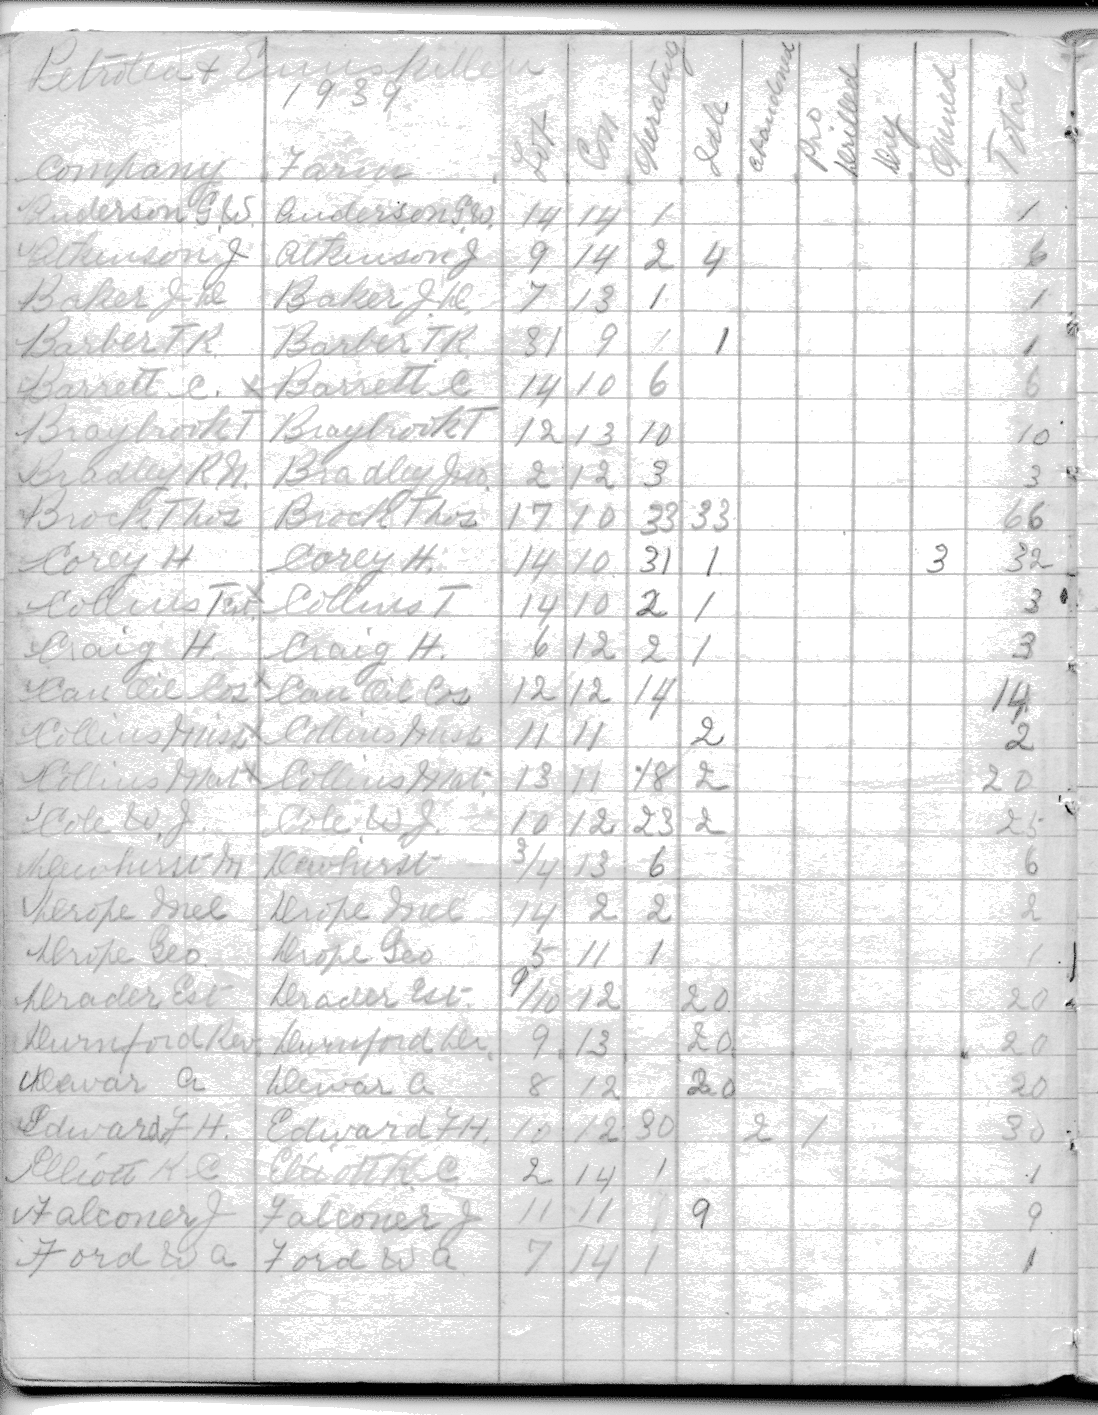 Petrolea + Enniskillen
1939
Company Farm Lot Con Operating Idle Abandoned Pro Drilled Dry Opened Total
Anderson G.W. Anderson G.W. 14 14 1 1
Atkinson J Atkinson J 9 14 2 4 6
Baker J.D. Baker J.D. 7 13 1 1
Barber T R Barber T R 81 9 1 1
Barrett C. x Barrett C 14 10 6 6
Braybrook T Braybrook T 12 13 10 10
Bradley R.N. Bradley 2 12 3 3
Brock Thos Brock Thos 17 10 33 33 66
Corey H Corey H. 14 10 31 1 3 32
Collins T Collins T 14 10 2 1 3
Craig H. Craig H. 6 12 2 1 3
Can Oil Cos x Can Oil Cos 12 12 14 14
Collins x Collins 11 11 2 2
Collins Mat x Collins Mat. 13 11 18 2 20
Cole W.J. Cole W.J. 10 12 23 2 25
Dewhirst M Dewhirst 3/4 13 6 6
Drope Mel Drope Mel 14 2 2 2
Drope Geo Drope Geo 5 11 1 1
Drader Est Drader Est. 9/10 12 20 20
Durnford Rev. Durnford Dr. 9 13 20 20
Dewar A Dewar A 8 12 20 20
Edward F H. Edward F H. 10 12 30 2 1 30
Elliott K C Elliott K. C 2 14 1 1
Falconer J Falconer J 11 11 9 9
Ford W A Ford W A 7 14 1 1